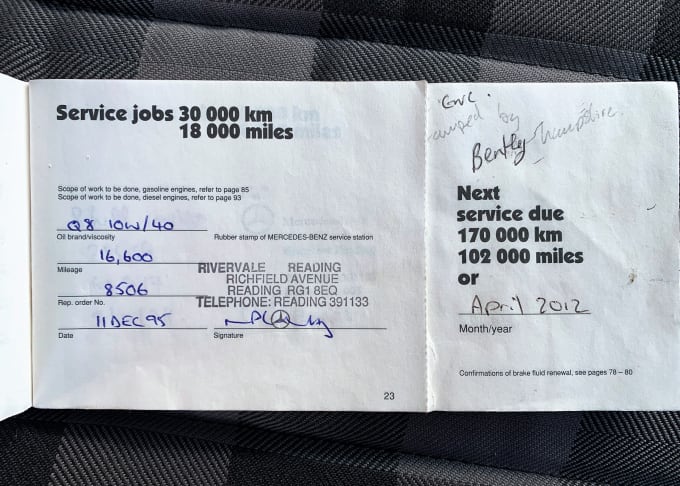 Service jobs 30 000 km
18 000 miles
Scope of work to be done, gasoline engines, refer to page 85
Scope of work to be done, diesel engines, refer to page 93
Q8 10W/40
Oil brand/viscosity
Rubber stamp of MERCEDES-BENZ service station
16,600
Mileage
8506
Rep. order No.
11 DEC 95
Date
RIVERVALE READING
RICHFIELD AVENUE
READING RG1 8EQ
TELEPHONE: READING 391133
Signature
23
by
Bently Hampshire.
Next
service due
170 000 km
102 000 miles
or
April 2012
Month/year
Confirmations of brake fluid renewal, see pages 78 – 80